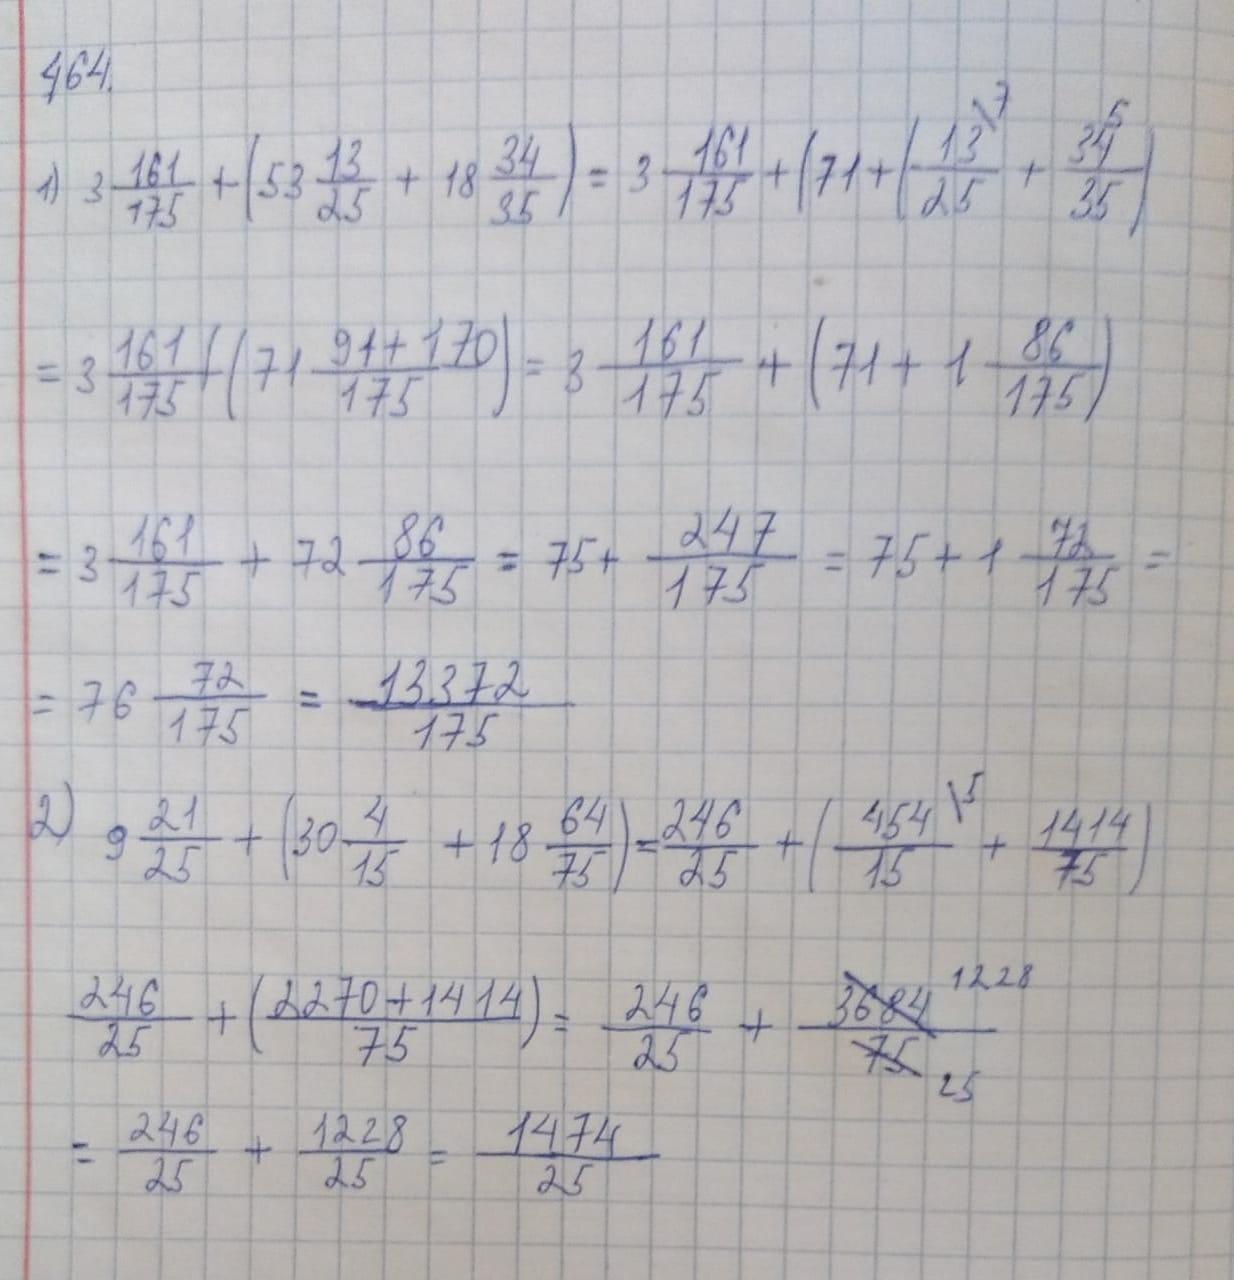 464.
1) 3 161/175 + (53 13/25 + 18 34/35) = 3 161/175 + (71 + (13\7/25 + 34 5/35)
= 3 161/175 + (71 91+170/175) = 3 161/175 + (71 + 1 86/175)
= 3 161/175 + 72 86/175 = 75 + 247/175 = 75 + 1 72/175 =
= 76 72/175 = 13372/175
2) 9 21/25 + (30 4/15 + 18 64/75) = 246/25 + (454\5/15 + 1414/75)
246/25 + (2270+1414/75) = 246/25 + 3684/75 1228 25
= 246/25 + 1228/25 = 1474/25